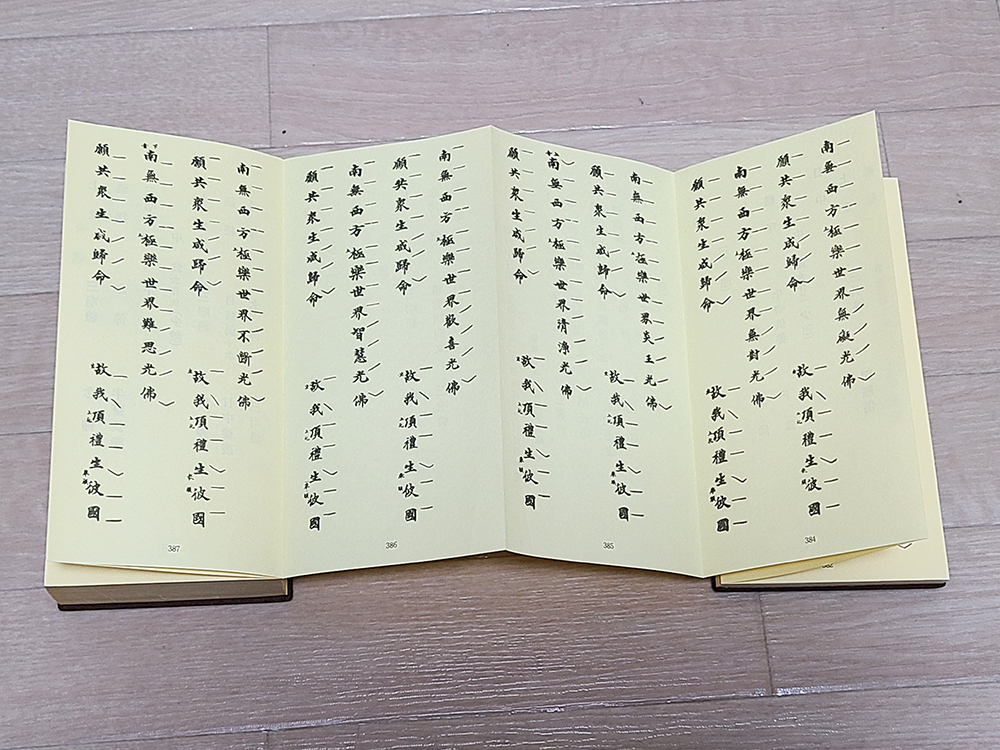 南無西方極樂世界無礙光佛
願共衆生咸歸命 故我頂禮生彼國
南無西方極樂世界無對光佛
願共衆生咸歸命 故我頂禮生彼國
384
南無西方極樂世界炎王光佛
願共衆生咸歸命 故我頂禮生彼國
南無西方極樂世界清淨光佛
願共衆生咸歸命 故我頂禮生彼國
385
南無西方極樂世界歡喜光佛
願共衆生咸歸命 故我頂禮生彼國
南無西方極樂世界智慧光佛
願共衆生咸歸命 故我頂禮生彼國
386
南無西方極樂世界不斷光佛
願共衆生咸歸命 故我頂禮生彼國
南無西方極樂世界難思光佛
願共衆生咸歸命 故我頂禮生彼國
387